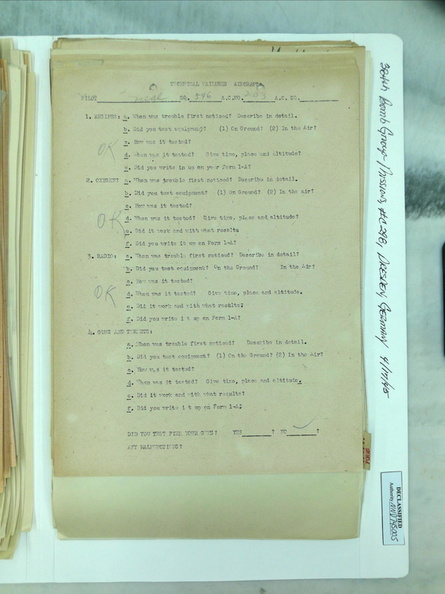 TECHNICAL FAILURES AIRCRAFT
PILOT Neal SQ. 546 A.C. NO.
1. ENGINES: a. When was trouble first noticed? Describe in detail.
b. Did you test equipment? (1) On Ground? (2) In the Air?
c. How was it tested?
OK
d. When was it tested? Give time, place and Altitude?
e. Did you write it up on your Form 1-A?
2. OXYGEN: a. When was trouble first noticed? Describe in detail.
b. Did you test equipment? (1) On Ground? (2) In the air?
c. How was it tested?
OK
d. When was it tested? Give time, place and altitude?
e. Did it work and with what results
f. Did you write it up on Form 1-A?
3. RADIO: a. When was trouble first noticed? Describe in detail?
b. Did you test equipment? On the Ground? In the Air?
c. How was it tested?
OK
d. When was it tested? Give time, place and altitude.
e. Did it work and with what results?
f. Did you write it up on Form 1-A?
4. GUNS AND TURRETS:
a. When was trouble first noticed? Describe in detail.
b. Did you test equipment? (1) On the Ground? (2) In the Air?
c. How was it tested?
d. When was it tested? Give time, place and altitude.
e. Did it work and with what results?
f. Did you write it up on Form 1-A?
DID YOU TEST FIRE YOUR GUNS? YES ? NO ?
ANY MALFUNCTIONS?
384th Bomb Group Mission, #298, Dresden, Germany 4/17/45
DECLASSIFIED
Authority NND745005